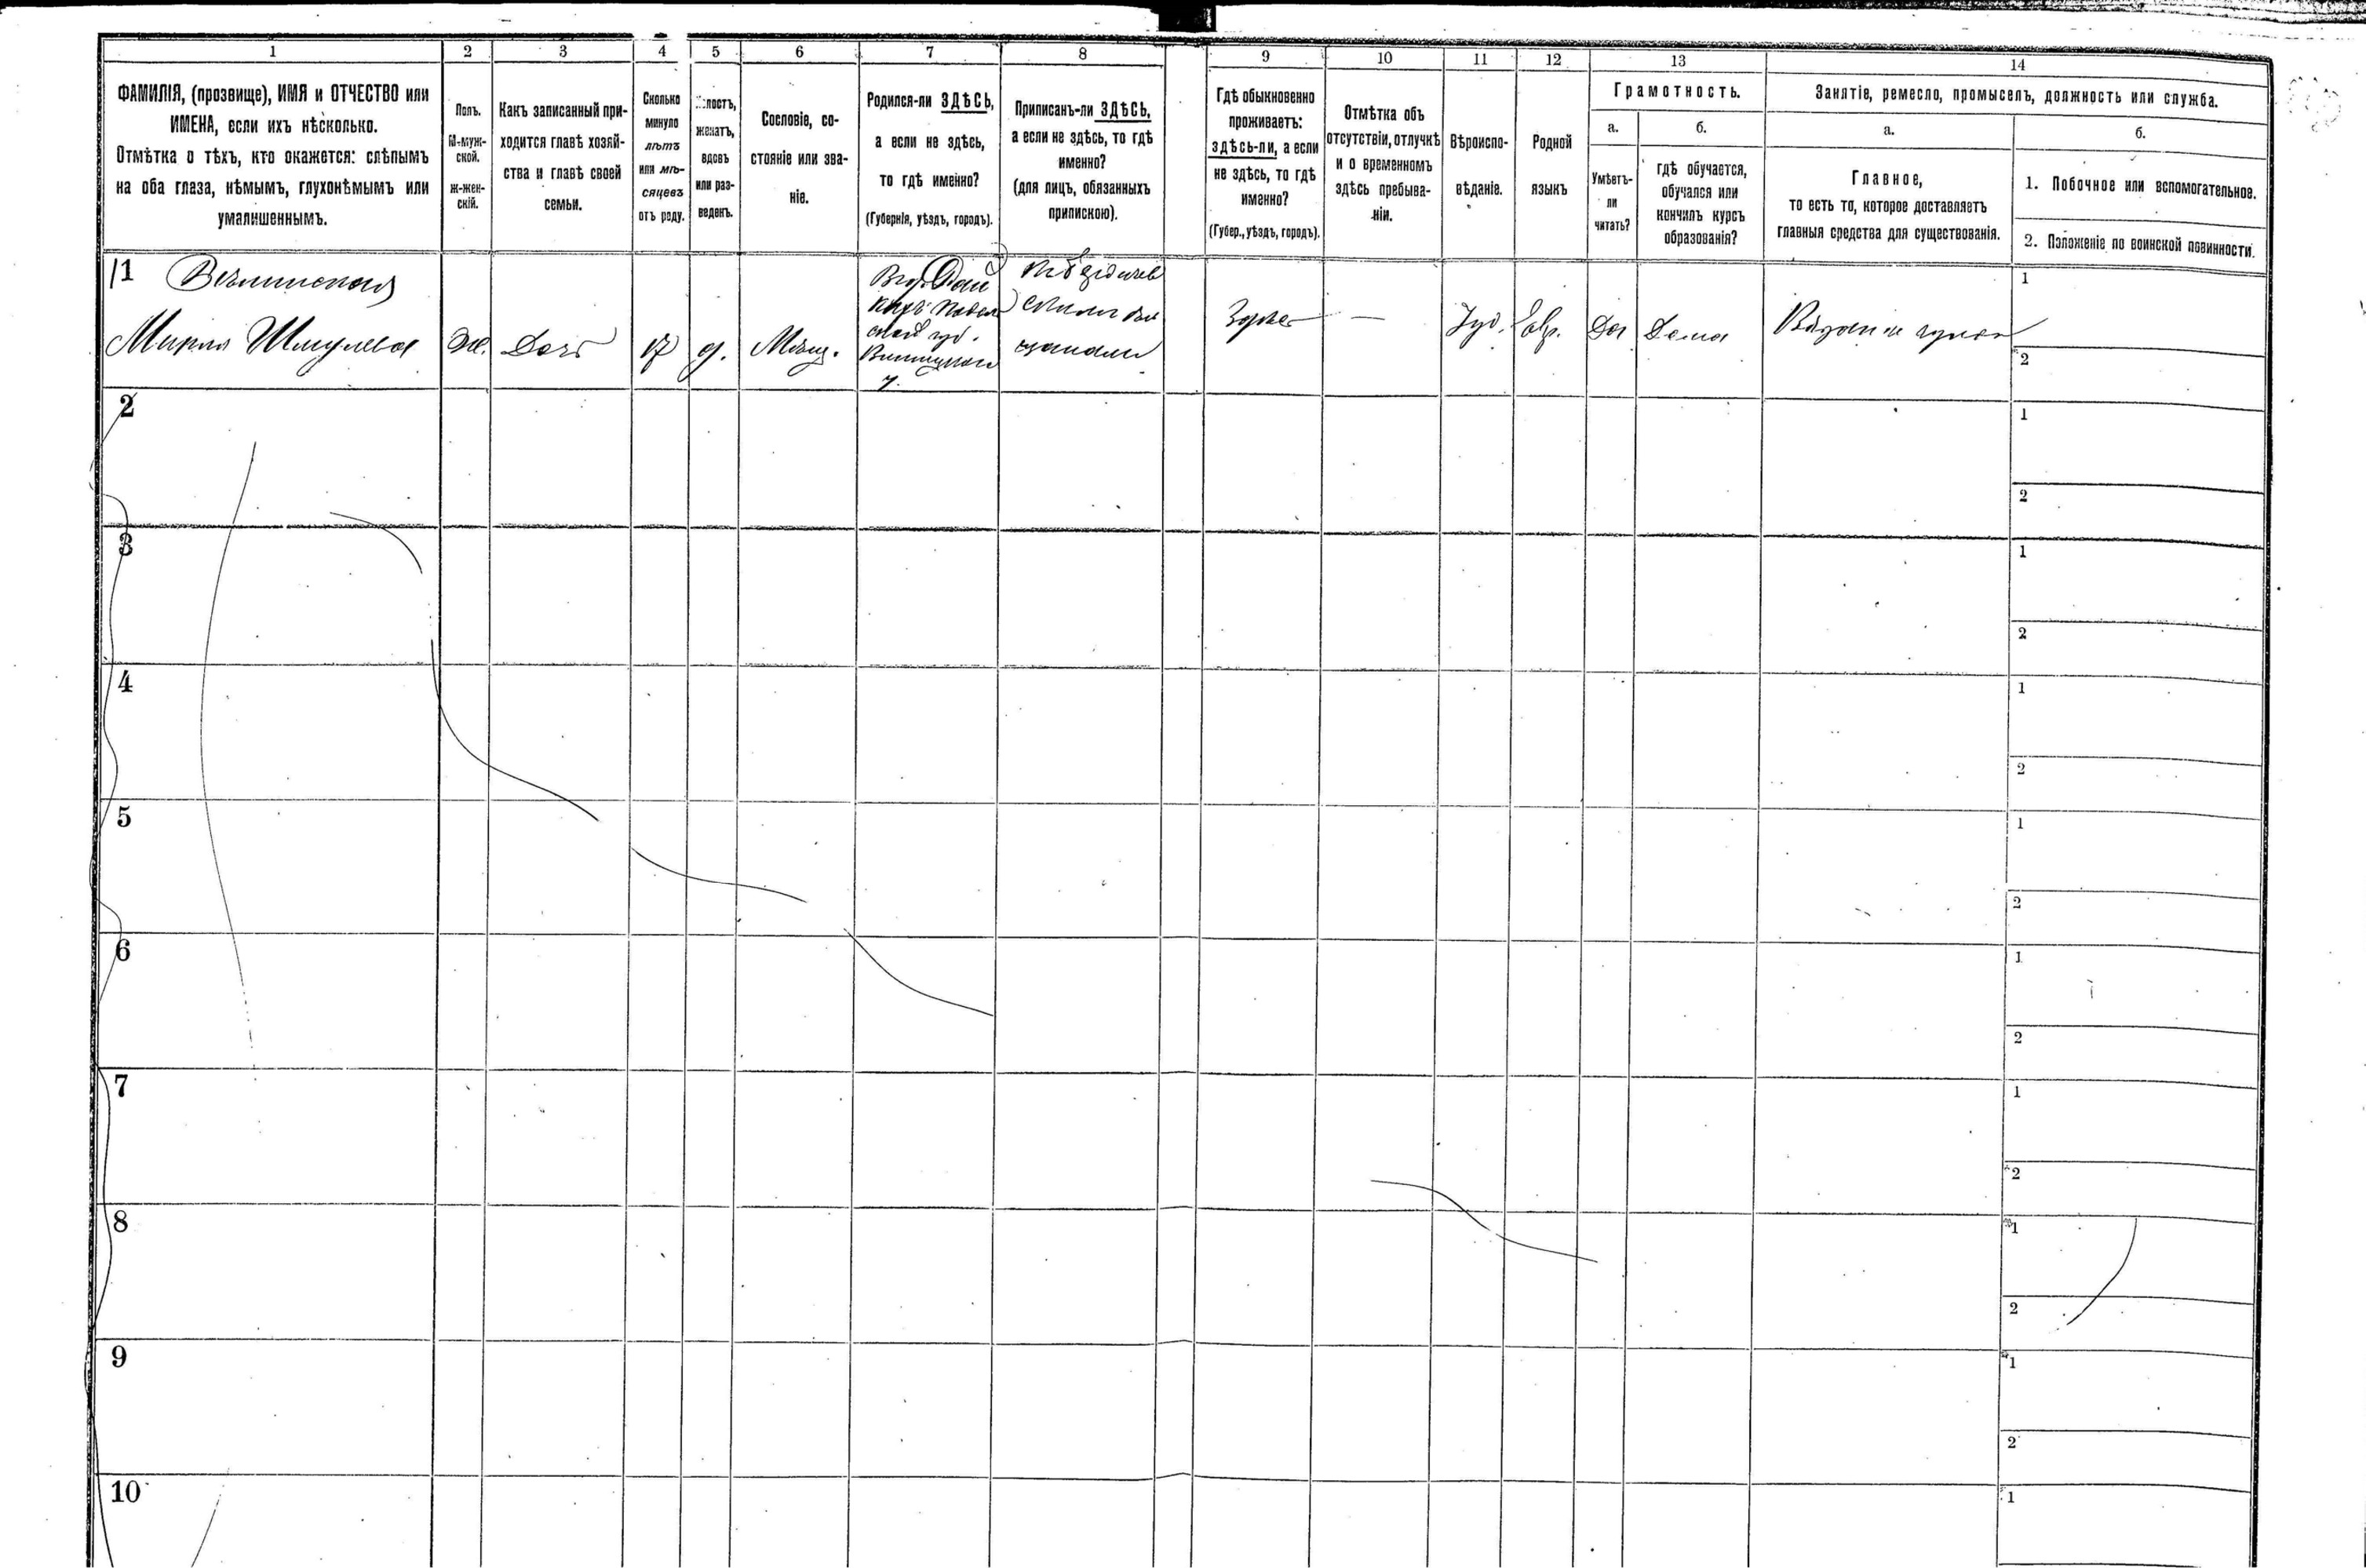 1 2 3 4 5 6 7 8 9 10 11 12 13 14
ФАМИЛІЯ, (прозвище), ИМЯ и ОТЧЕСТВО или
ИМЕНА, если ихъ нѣсколько.
Отмѣтка о тѣхъ, кто окажется: слѣпымъ
на оба глаза, нѣмымъ, глухонѣмымъ или
умалишеннымъ.
Полъ.
М-муж-
ской.
ж-жен-
скій.
Какъ записанный при-
ходится главѣ хозяй-
ства и главѣ своей
семьи.
Сколько
минуло
лѣтъ
или мѣ-
сяцевъ
отъ роду.
женатъ,
вдовъ
или раз-
веденъ.
Сословіе, со-
стояніе или зва-
ніе.
Родился-ли ЗДѢСЬ,
а если не здѣсь,
то гдѣ именно?
(Губернія, уѣздъ, городъ).
Приписанъ-ли ЗДѢСЬ,
а если не здѣсь, то гдѣ
именно?
(для лицъ, обязанныхъ
припискою).
Гдѣ обыкновенно
проживаетъ:
здѣсь-ли, а если
не здѣсь, то гдѣ
именно?
(Губер., уѣздъ, городъ).
Отмѣтка объ
отсутствіи, отлучкѣ
и о временномъ
здѣсь пребыва-
ніи.
Вѣроиспо-
вѣданіе.
Родной
языкъ
Грамотность.
а.
Умѣетъ-
ли
читать?
б.
гдѣ обучается,
обучался или
кончилъ курсъ
образованія?
Занятіе, ремесло, промыселъ, должность или служба.
а.
Главное,
то есть то, которое доставляетъ
главныя средства для существованія.
б.
1. Побочное или вспомогательное.
2. Положеніе по воинской повинности.
1
Мирля Шмулева
Ж.
Дочь
17
д.
Мѣщ.
Винницкаго
у.
—
Іуд.
Евр.
Да
Дома
1
2
2
1
2
3
1
2
4
1
2
5
1
2
6
1
2
7
1
2
8
1
2
9
1
2
10
1